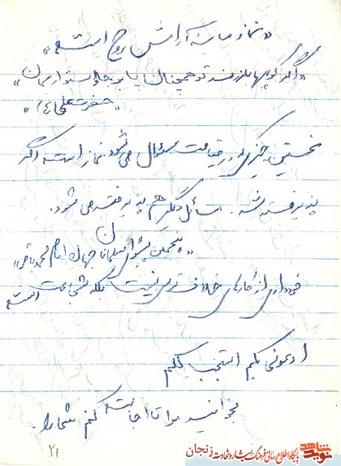 «نماز مایه آرامش روح است»
«اگر کوهها بلرزند تو همچنان پا بر جا و استوار بمان»
«حضرت علی (ع)»
نخستین چیزی که در قیامت سئوال می شود نماز است اگر
پذیرفته شد. مسائل دیگر هم پذیرفته می شود.
«پنجمین پیشوای مسلمانان جهان امام محمد باقر»
خودداری از کارهای خلاف ترس نیست بلکه شجاعت است
ادعونی استجب لکم
بخوانید مرا تا اجابت کنم شما را.
۲۱
نوید شاهد
پایگاه اطلاع رسانی فرهنگ ایثار و شهادت زنجان